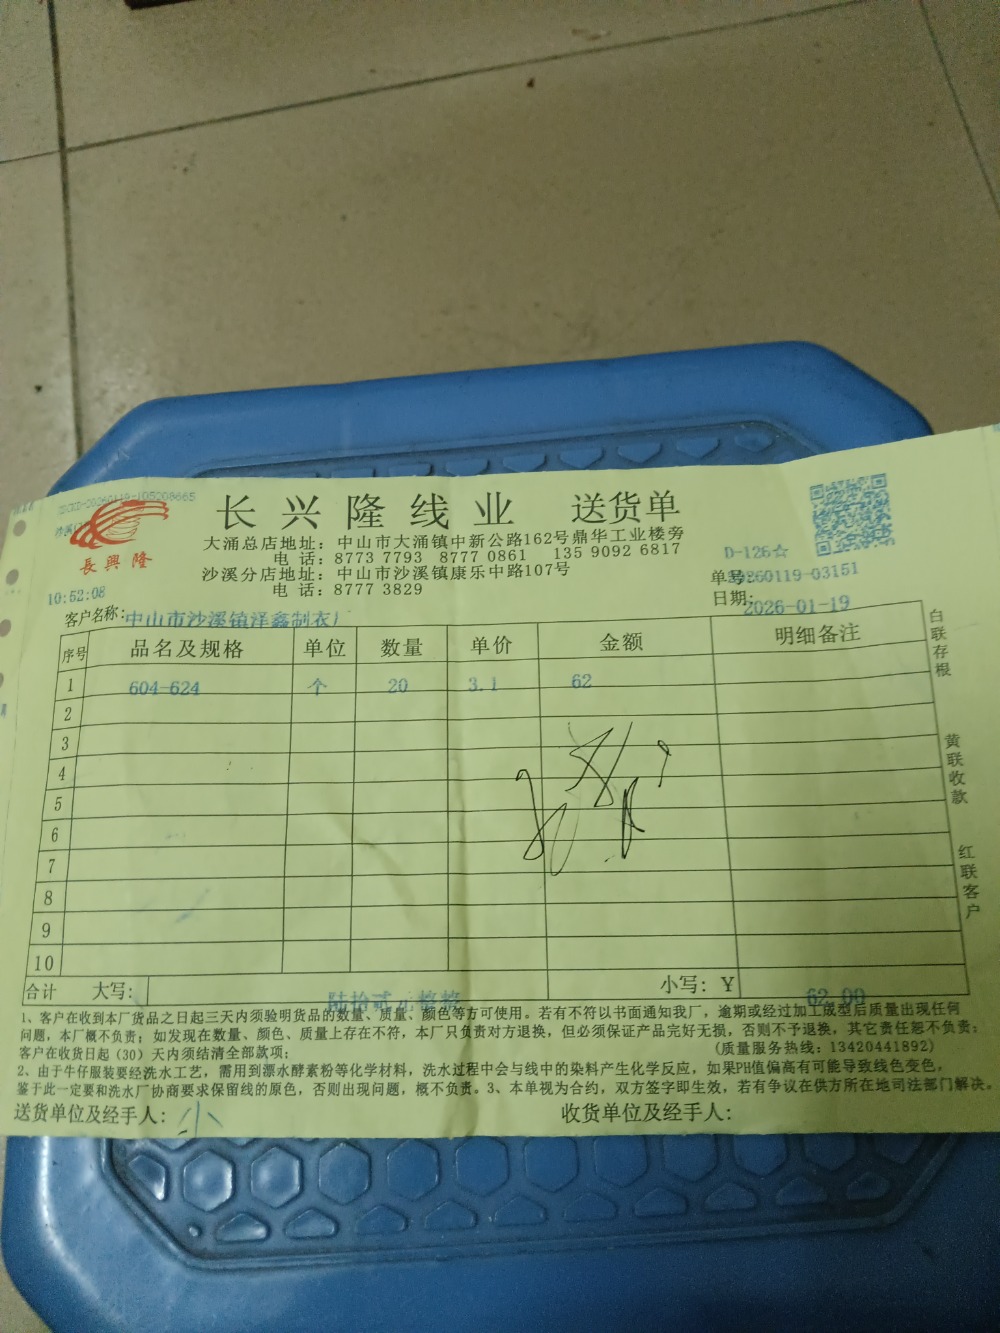 长兴隆线业 送货单
長興隆
大涌总店地址：中山市大涌镇中新公路162号鼎华工业楼旁
电 话：8773 7793 8777 0861 135 9092 6817
沙溪分店地址：中山市沙溪镇康乐中路107号
电 话：8777 3829
D-126☆
单号:20260119-03151
日期:2026-01-19
10:52:08
客户名称:中山市沙溪镇洋鑫制衣厂
序号 品名及规格 单位 数量 单价 金额 明细备注
1 604-624 个 20 3.1 62
2
3
4
5
6
7
8
9
10
合计 大写: 陆拾贰元整 小写: ¥ 62.00
白联存根
黄联收款
红联客户
1、客户在收到本厂货品之日起三天内须验明货品的数量、质量、颜色等方可使用。若有不符以书面通知我厂，逾期或经过加工成型后质量出现任何
问题，本厂概不负责；如发现在数量、颜色、质量上存在不符，本厂只负责对方退换，但必须保证产品完好无损，否则不予退换，其它责任恕不负责；
客户在收货日起（30）天内须结清全部款项； (质量服务热线：13420441892)
2、由于牛仔服装要经洗水工艺，需用到漂水酵素粉等化学材料，洗水过程中会与线中的染料产生化学反应，如果PH值偏高有可能导致线色变色，
鉴于此一定要和洗水厂协商要求保留线的原色，否则出现问题，概不负责。3、本单视为合约，双方签字即生效，若有争议在供方所在地司法部门解决。
送货单位及经手人: 小
收货单位及经手人: